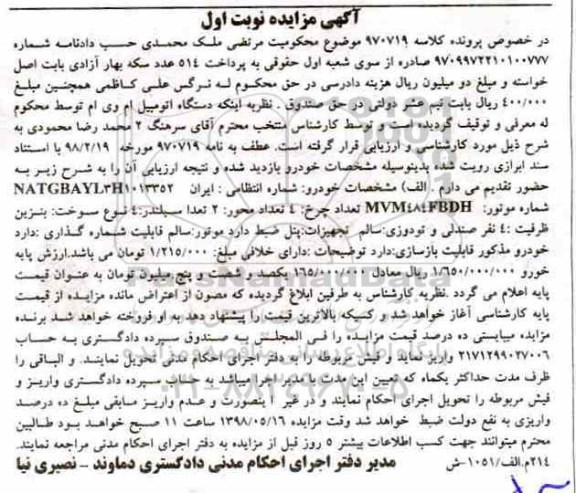 آگهی مزایده نوبت اول
در خصوص پرونده کلاسه ۹۷۰۷۱۹ موضوع محکومیت مرتضی ملک محمدی حسب دادنامه شماره
۹۷۰۹۹۷۲۲۱۰۱۰۰۷۷۷ صادره از سوی شعبه اول حقوقی به پرداخت ۵۱۴ عدد سکه بهار آزادی بابت اصل
خواسته و مبلغ دو میلیون ریال هزینه دادرسی در حق محکوم له نرگس علی کاظمی همچنین مبلغ
۴۰۰/۰۰۰ ریال بابت نیم عشر دولتی در حق صندوق . نظریه اینکه دستگاه اتومبیل ام وی ام توسط محکوم
له معرفی و توقیف گردیده است و توسط کارشناس منتخب محترم آقای سرهنگ ۲ محمد رضا محمودی به
شرح ذیل مورد کارشناسی و ارزیابی قرار گرفته است. عطف به نامه ۹۷۰۷۱۹ مورخه ۹۸/۲/۱۹ با استناد
سند ابرازی رویت شده بدینوسیله مشخصات خودرو بازدید شده و نتیجه ارزیابی آن را به شرح زیر به
حضور تقدیم می دارم . الف) مشخصات خودرو: شماره انتظامی : ایران NATGBAYL۳H۱۰۱۳۳۵۲
شماره موتور: MVM۴۸۴FBDH تعداد چرخ: ٤ تعداد محور: ۲ تعدا سیلندر:٤ نوع سوخت: بنزین
ظرفیت :٤ نفر صندلی و تودوزی:سالم تجهیزات:پنل ضبط دارد موتور:سالم قابلیت شماره گذاری :دارد
خودرو مذکور قابلیت بازسازی:دارد توضیحات :دارای خلافی مبلغ: ۱/۲۱۵/۰۰۰ تومان می باشد.ارزش پایه
خورو ۱/۶۵۰/۰۰۰/۰۰۰ ریال معادل ۱۶۵/۰۰۰/۰۰۰ یکصد و شصت و پنج میلیون تومان به عنوان قیمت
پایه اعلام می گردد .نظریه کارشناس به طرفین ابلاغ گردیده که مصون از اعتراض مانده مزایده از قیمت
پایه کارشناسی آغاز خواهد شد و کسیکه بالاترین قیمت را پیشنهاد دهد به او فروخته خواهد شد برنده
مزایده میبایستی ده درصد قیمت مزایده را فی المجلس به صندوق سپرده دادگستری به حساب
۲۱۷۱۲۹۹۰۲۷۰۰۶ واریز نماید و فیش مربوطه را به دفتر اجرای احکام مدنی تحویل نمایند. و الباقی را
ظرف مدت حداکثر یکماه که تعیین این مدت با مدیر اجرا میباشد به حساب سپرده دادگستری واریز و
فیش مربوطه را تحویل اجرای احکام نمایند و در غیر اینصورت و عدم واریز مابقی مبلغ ده درصد
واریزی به نفع دولت ضبط خواهد شد وقت مزایده ۱۳۹۸/۰۵/۱۶ ساعت ۱۱ صبح خواهد بود طالبین
محترم میتوانند جهت کسب اطلاعات بیشتر ۵ روز قبل از مزایده به دفتر اجرای احکام مدنی مراجعه نمایند.
۲۱۴م.الف/۱۰۵۱-ش مدیر دفتر اجرای احکام مدنی دادگستری دماوند - نصیری نیا